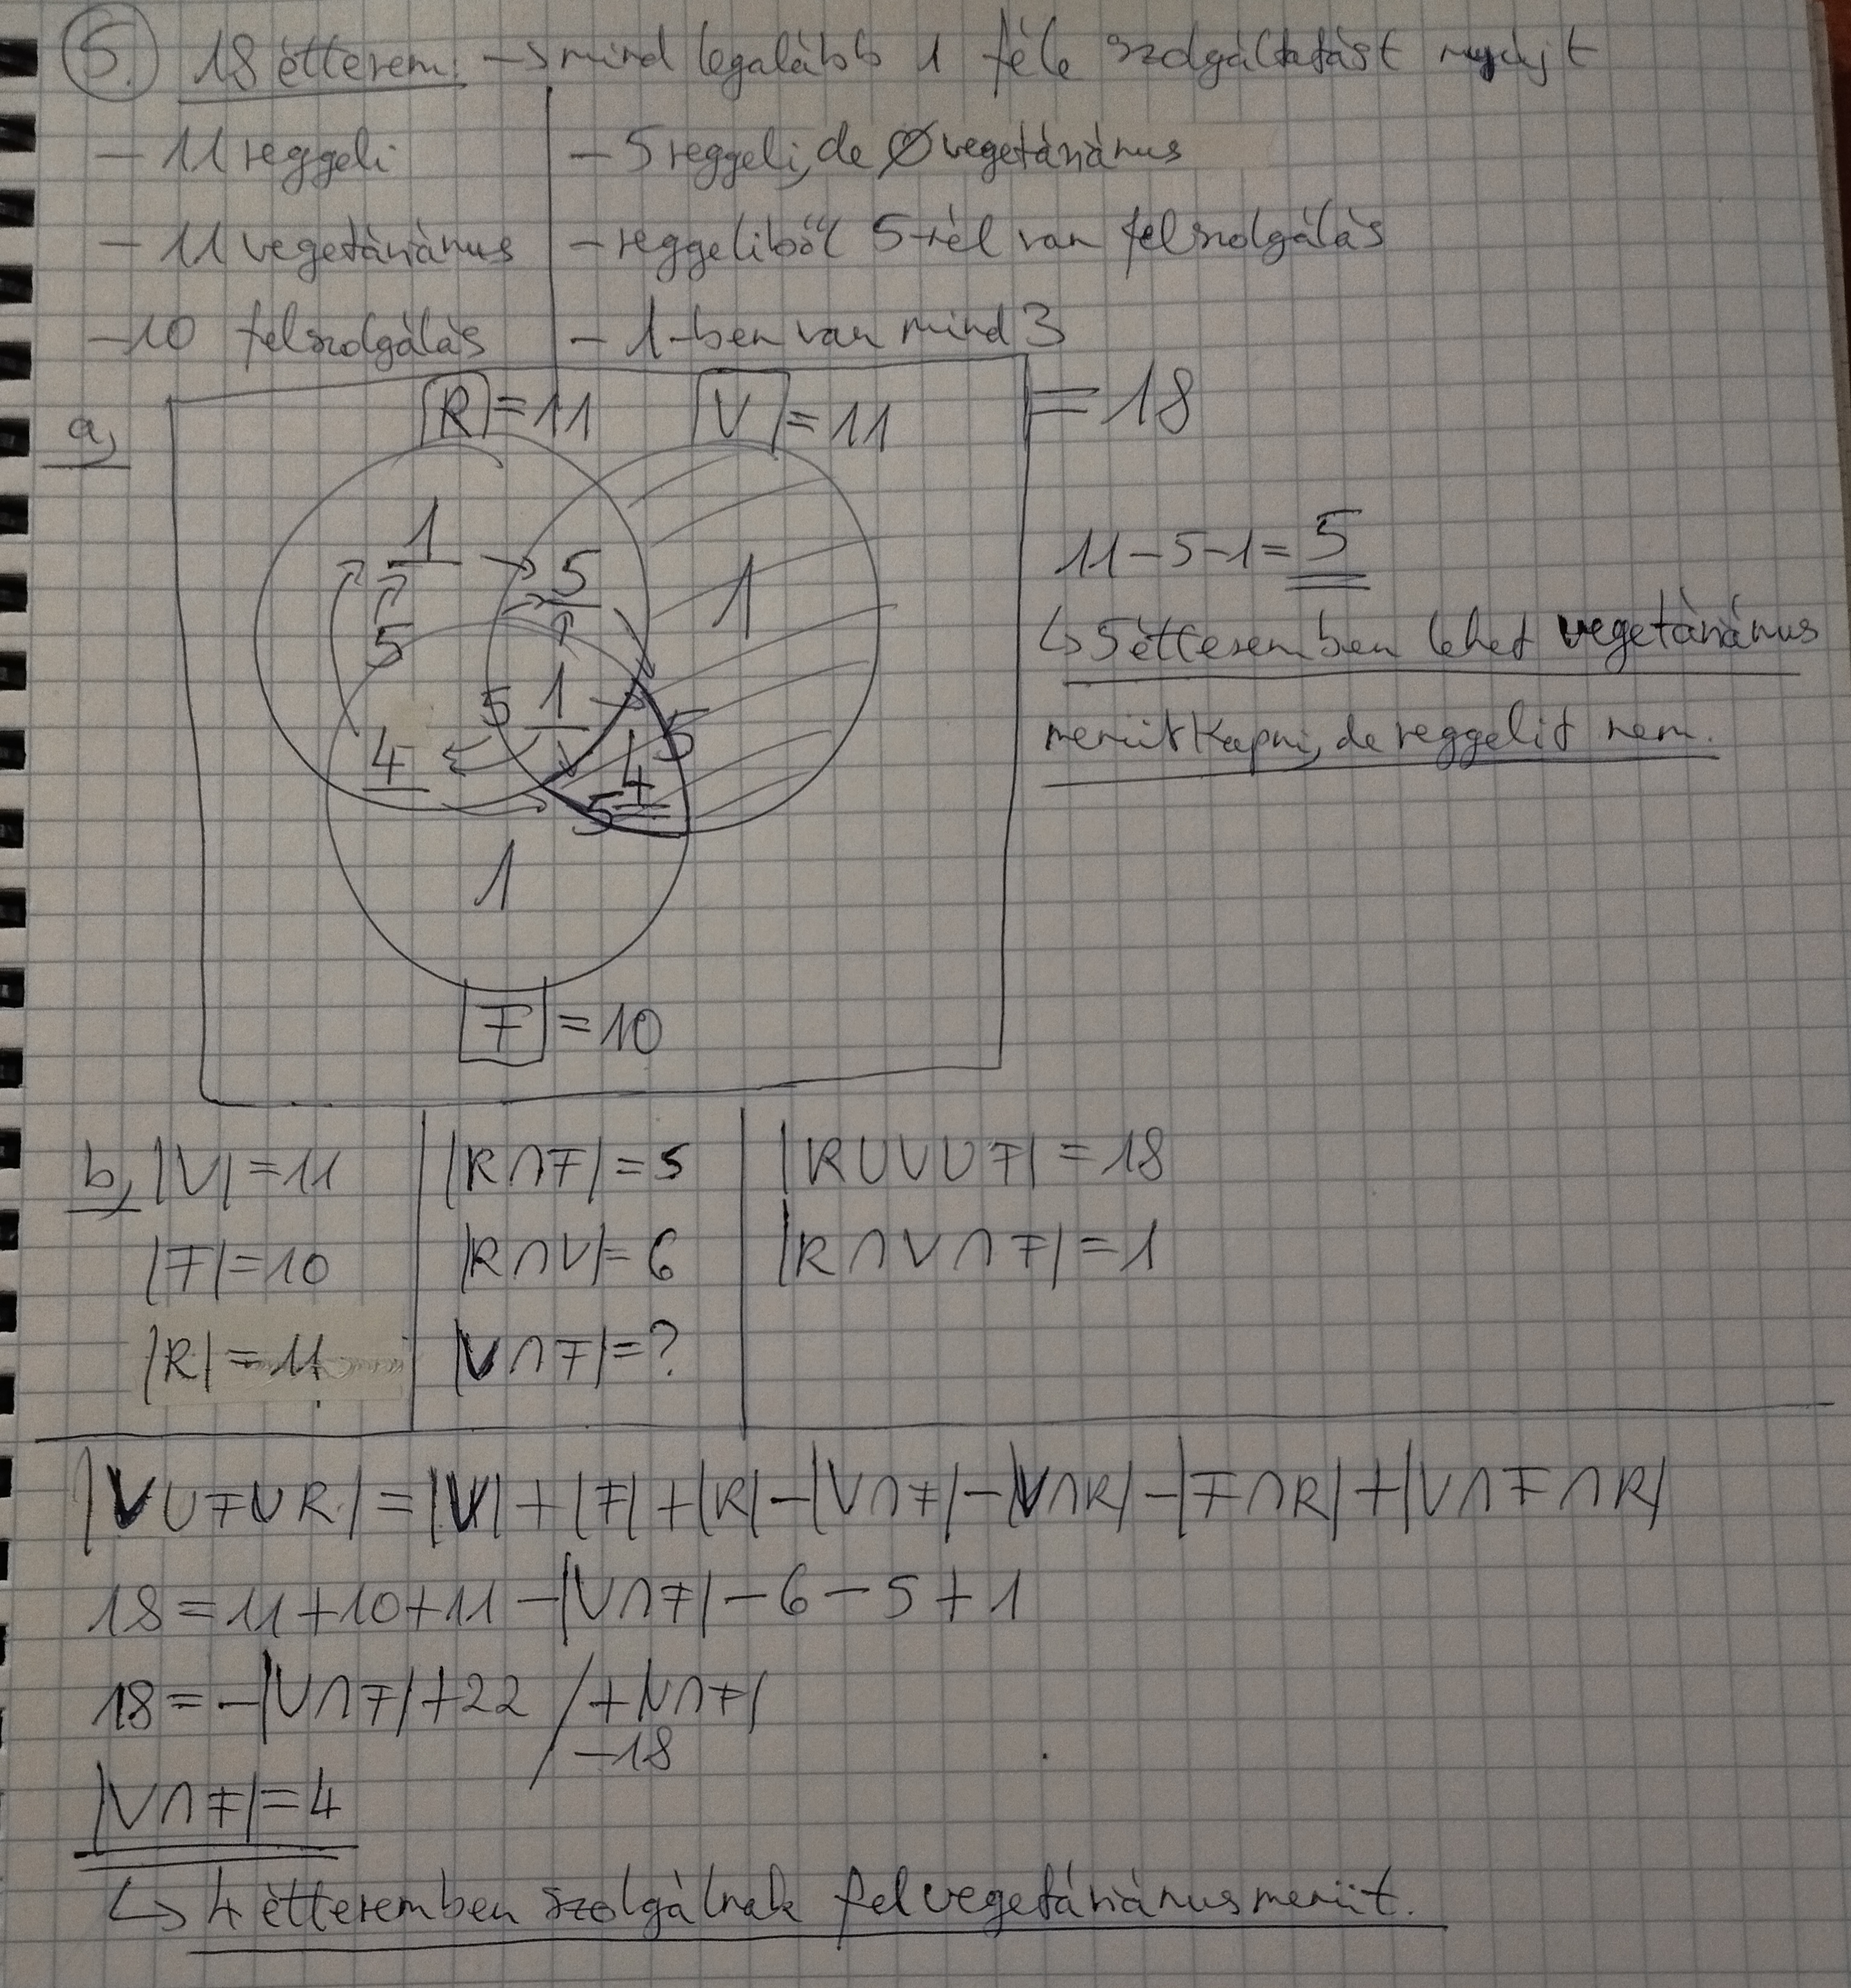 5. 18 étterem: → mind legalább 1 féle szolgáltatást nyújt
- 11 reggeli
- 11 vegetáriánus
- 10 felszolgálás
- 5 reggeli, de ∅ vegetáriánus
- reggeliből 5-nél van felszolgálás
- 1-ben van mind 3
a,
R = 11
V = 11
= 18
1
5
1
5
5 1
4
4 5
5
1
F = 10
11-5-1=5
↳ 5 étteremben lehet vegetáriánus
menüt kapni, de reggelit nem.
b, |V| = 11
|F| = 10
|R| = 11
|R∩F| = 5
|R∩V| = 6
|V∩F| = ?
|R∪V∪F| = 18
|R∩V∩F| = 1
|V∪F∪R| = |V| + |F| + |R| - |V∩F| - |V∩R| - |F∩R| + |V∩F∩R|
18 = 11 + 10 + 11 - |V∩F| - 6 - 5 + 1
18 = -|V∩F| + 22 / +|V∩F|
-18
|V∩F| = 4
↳ 4 étteremben szolgálnak fel vegetáriánus menüt.